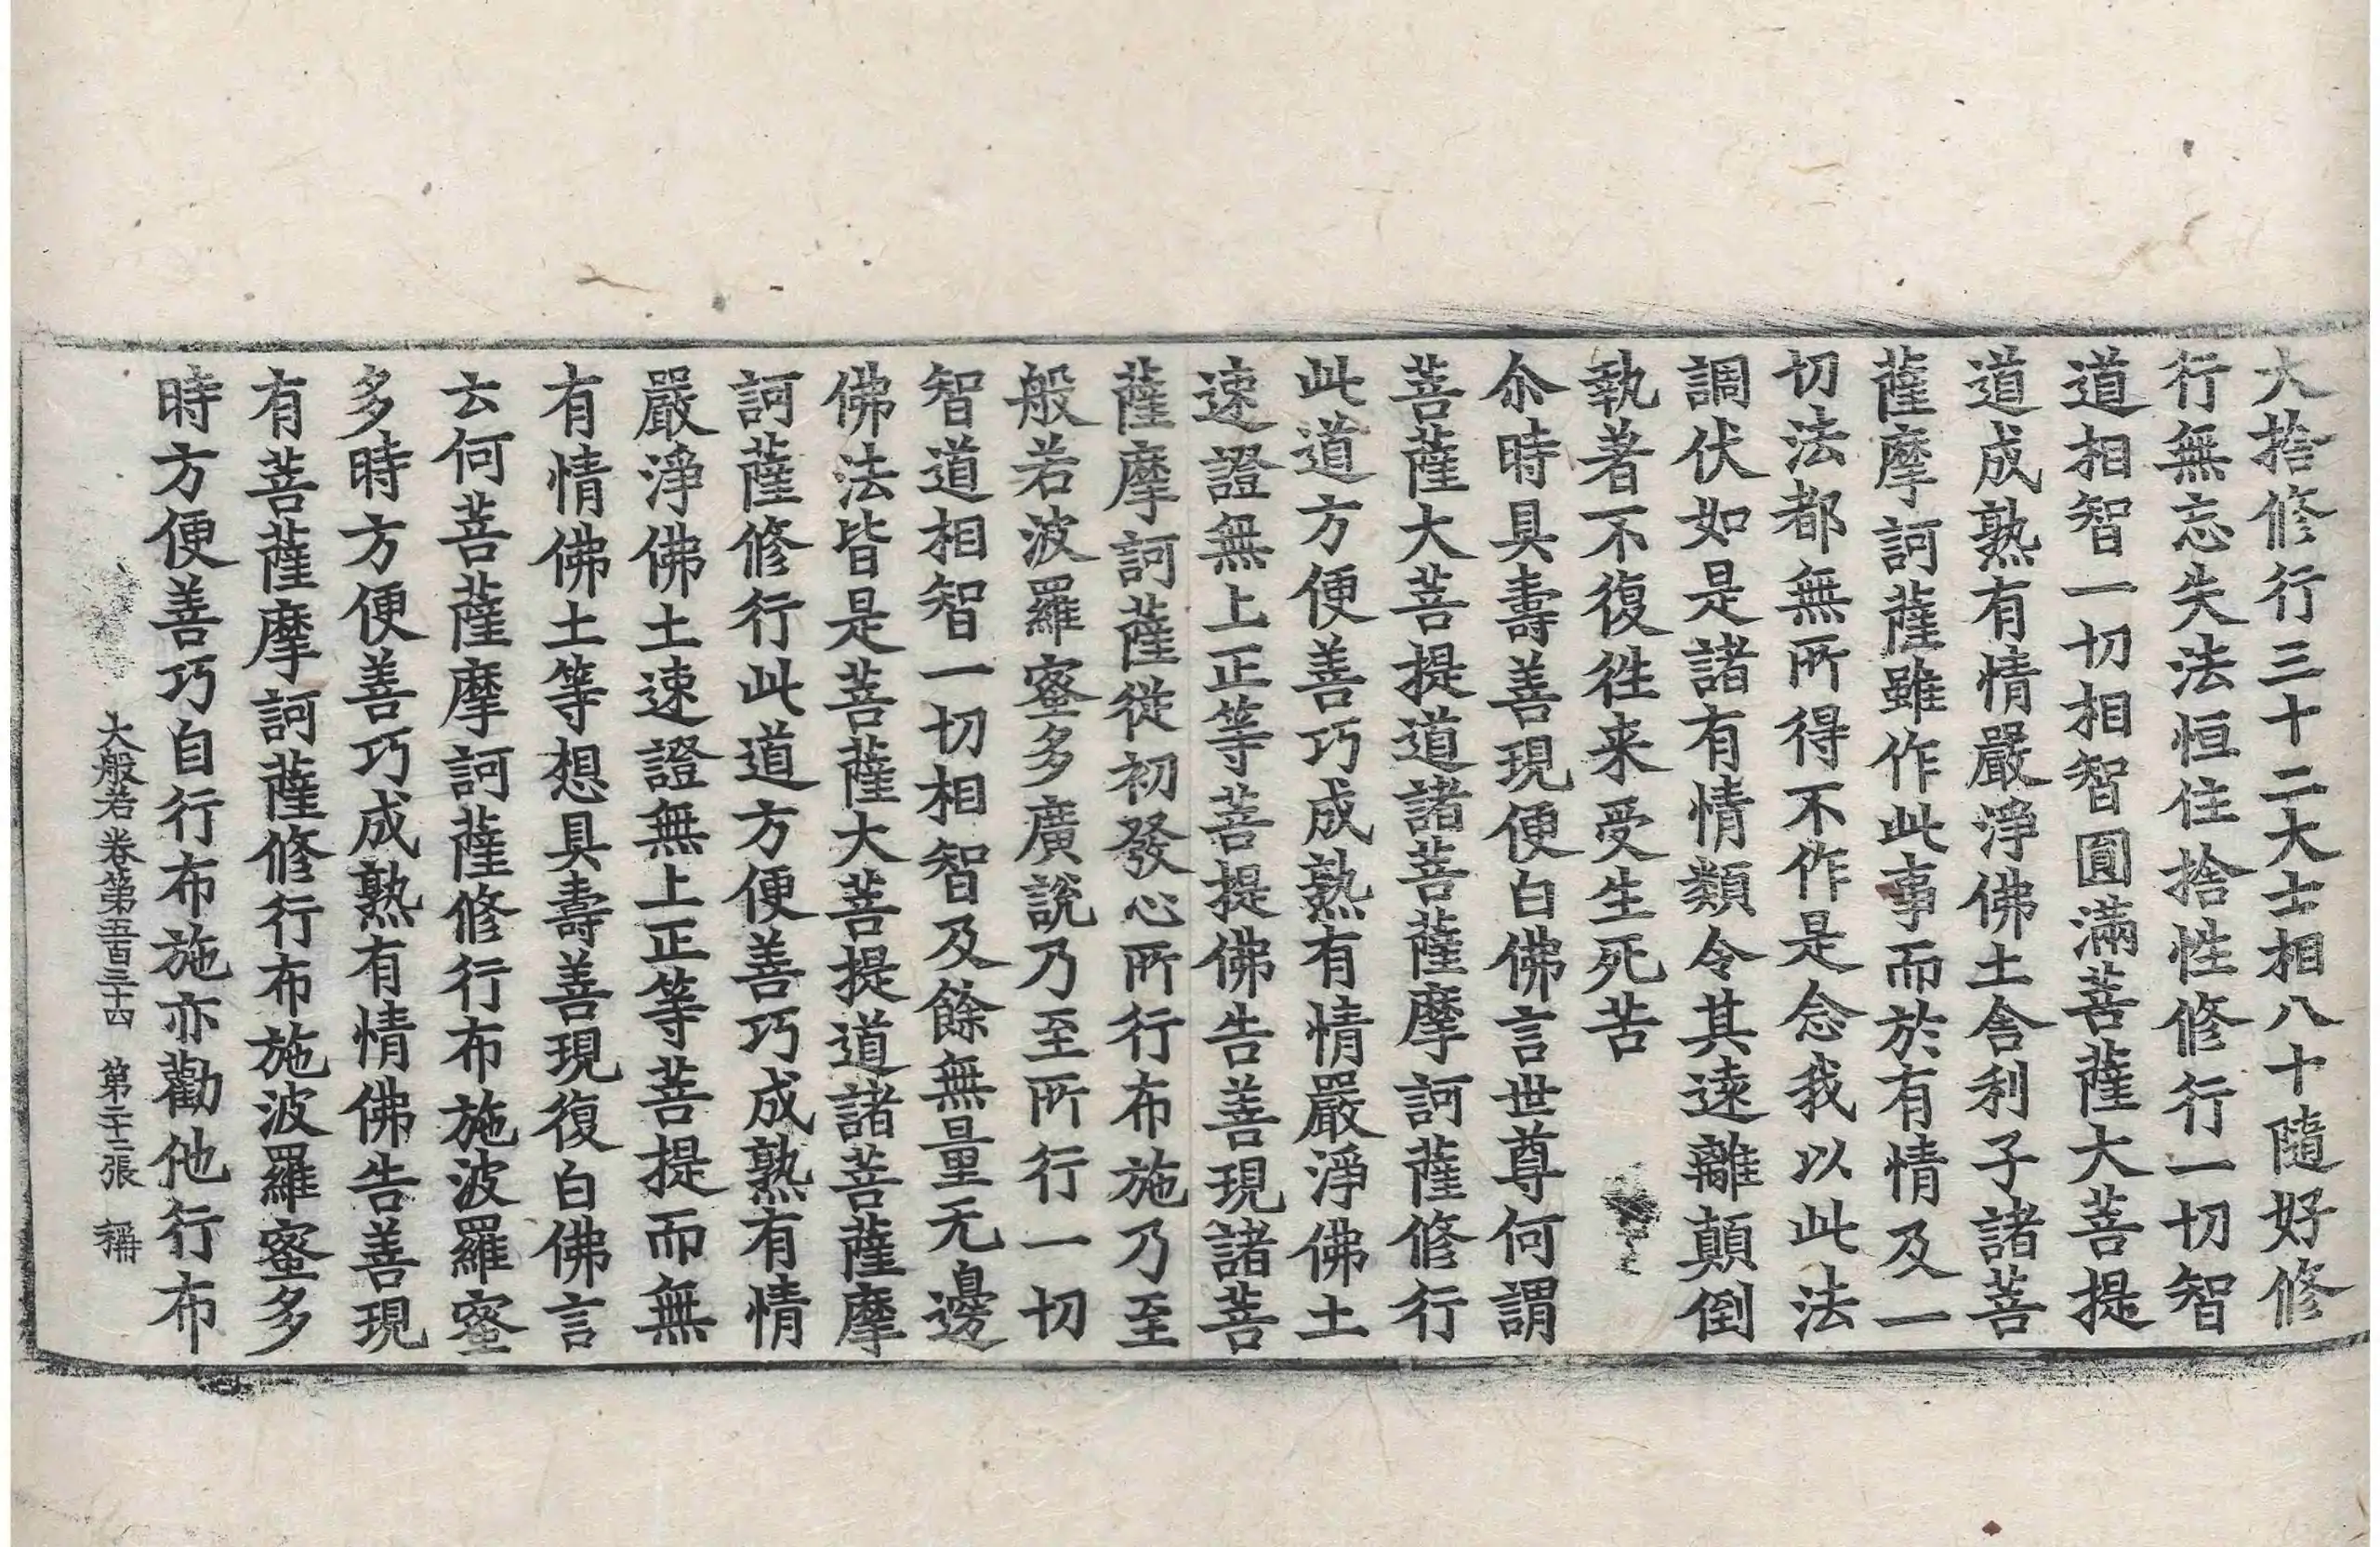 大捨修行三十二大士相八十隨好修
行無忘失法恒住捨性修行一切智
道相智一切相智圓滿菩薩大菩提
道成熟有情嚴淨佛土舍利子諸菩
薩摩訶薩雖作此事而於有情及一
切法都無所得不作是念我以此法
調伏如是諸有情類令其遠離顛倒
執著不復徃来受生死苦
尒時具壽善現便白佛言世尊何謂
菩薩大菩提道諸菩薩摩訶薩修行
此道方便善巧成熟有情嚴淨佛土
速證無上正等菩提佛告善現諸菩
薩摩訶薩從初發心所行布施乃至
般若波羅蜜多廣說乃至所行一切
智道相智一切相智及餘無量无邊
佛法皆是菩薩大菩提道諸菩薩摩
訶薩修行此道方便善巧成熟有情
嚴淨佛土速證無上正等菩提而無
有情佛土等想具壽善現復白佛言
云何菩薩摩訶薩修行布施波羅蜜
多時方便善巧成熟有情佛告善現
有菩薩摩訶薩修行布施波羅蜜多
時方便善巧自行布施亦勸他行布
大般若卷第五百三十四 第二十二張 稱